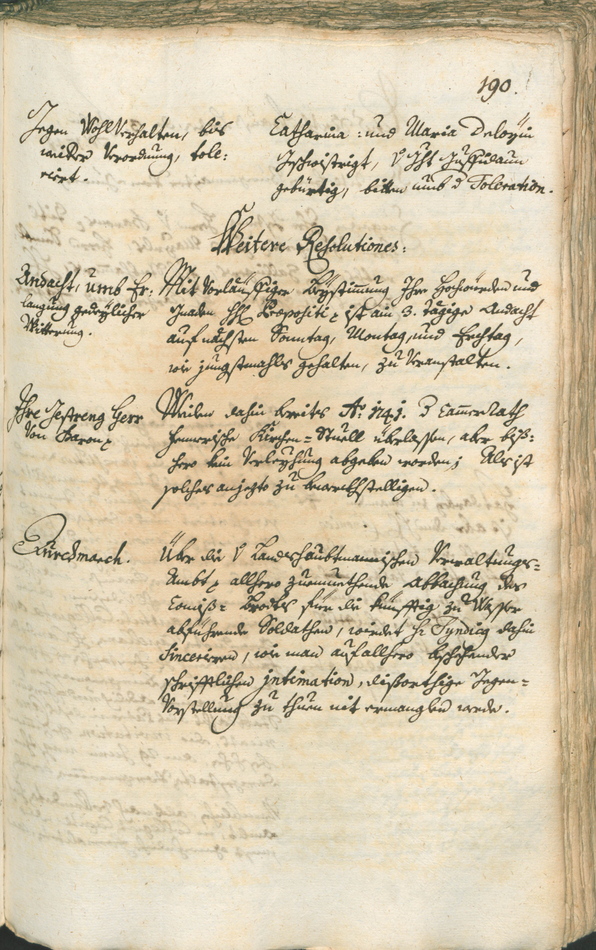 190.
Gegen Wohlverhalten, bis
weitere Verordnung, tole:
rirt.
Catharina: und Maria
Geschwistrigt,
gebürtig, bitten umb d Toleration.
Weitere Resolutiones:
Andacht, umb Er:
langung gedeylicher
Witterung.
Mit Vorläuffiger Beystimmung Ihro Hochwürden und
Gnaden H: Praepositi ist ain 3. tägige Andacht
auf nächsten Sonntag, Montag, und Erchtag,
wie jüngstmahls gehalten, zu Veranstalten.
Ihre Gestreng Herr
Von
Weilen dahin bereits Aõ: 1741. d CammerRath
Kirchen=Stuell überlassen, aber biß:
hero kein Verleyhung abgeben worden; Als ist
solches anjezto zu bewerckhstelligen.
Durchmarch.
Über die V Landtshaubtmannischen Verwaltungs=
Ambt allhero zuemuethende abbachung des
Comiß=Brodts für die künfftig zu Wasser
abführende Soldathen, würdet H: Syndicq dahin
sinceriren, wie man auf allhero beschehender
schrifftlichen intimation, dißorthige Gegen=
Vorstellung zu thuen nit ermanglen werde.